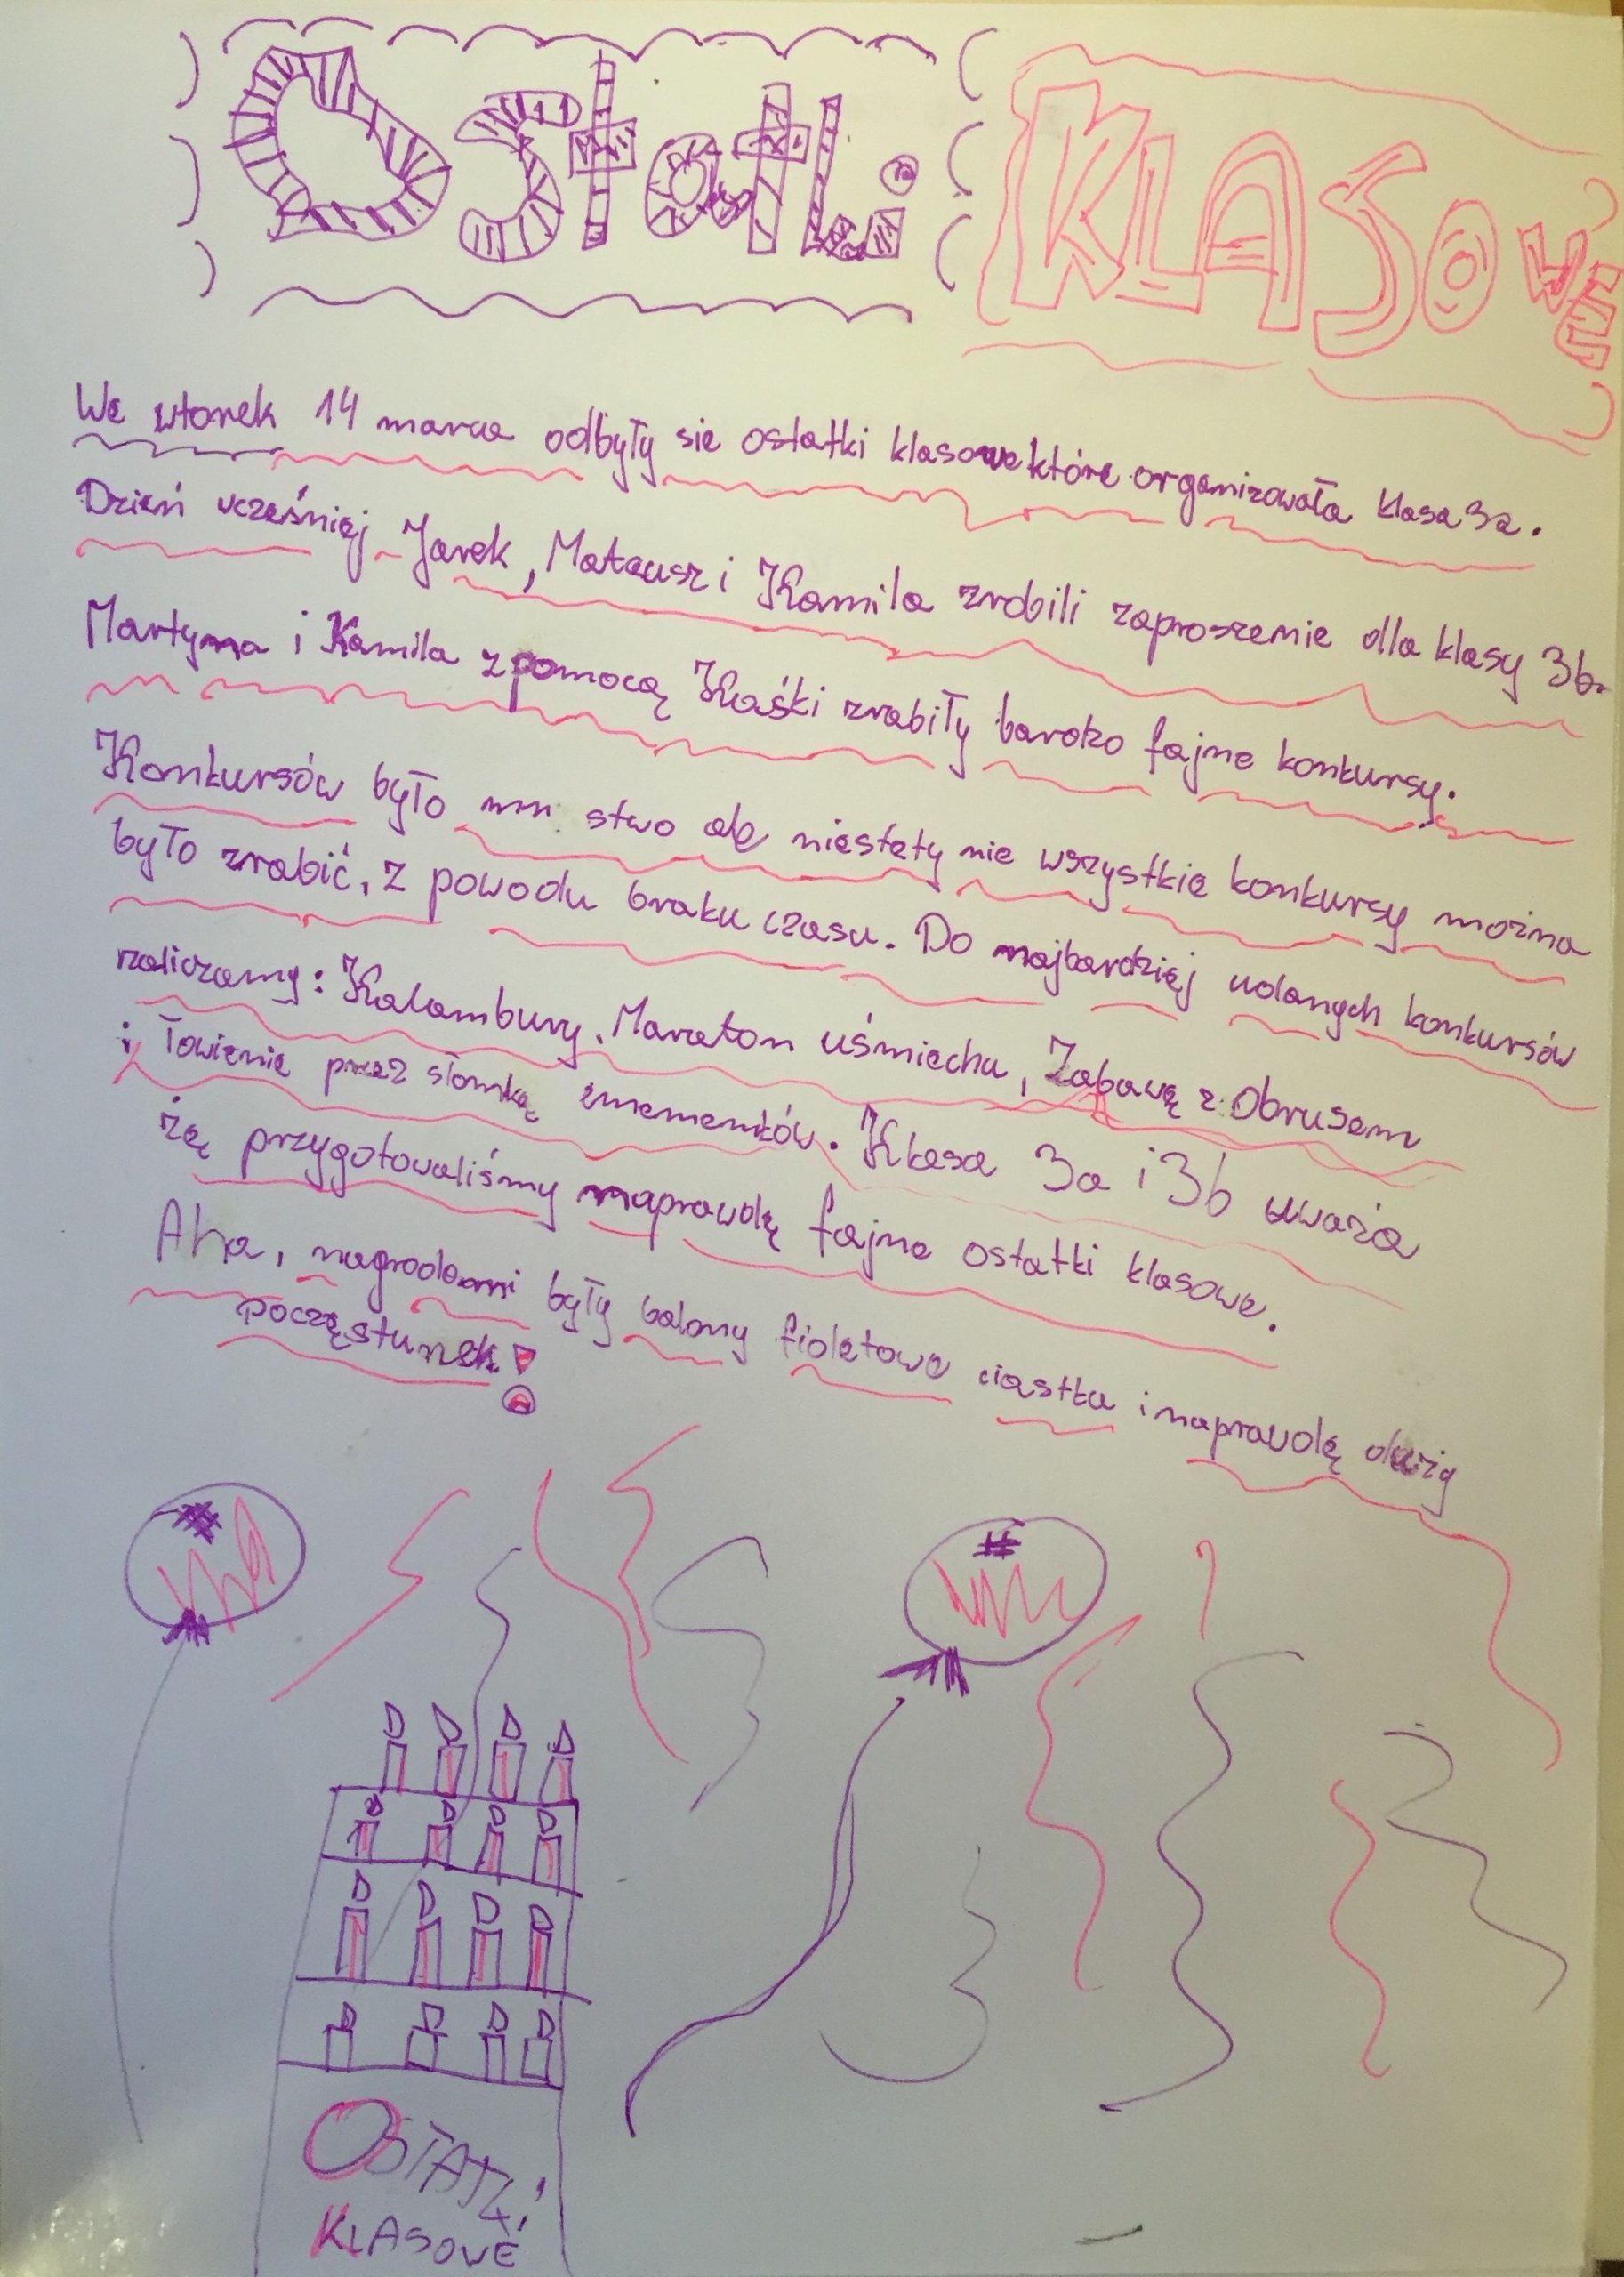 Ostatki KLASOWE
We wtorek 14 marca odbyły sie ostatki klasowe które organizowała klasa 3a.
Dzień wcześniej Jarek, Mateusz i Kamila zrobili zaproszenie dla klasy 3b.
Martyna i Kamila z pomocą Kaśki zrobiły bardzo fajne konkursy.
Konkursów było mnustwo ale niestety nie wszystkie konkursy można
było zrobić, z powodu braku czasu. Do najbardziej udanych konkursów
zaliczamy: Kalambury, Maraton uśmiechu, Zabawę z Obrusem
i Łowienie przez słomkę . Klasa 3a i 3b uważa
żę przygotowaliśmy naprawdę fajne ostatki klasowe.
Aha, nagrodami były balony fioletowe ciastka i naprawdę duży
poczęstunek!
OSTATKI
KLASOWE